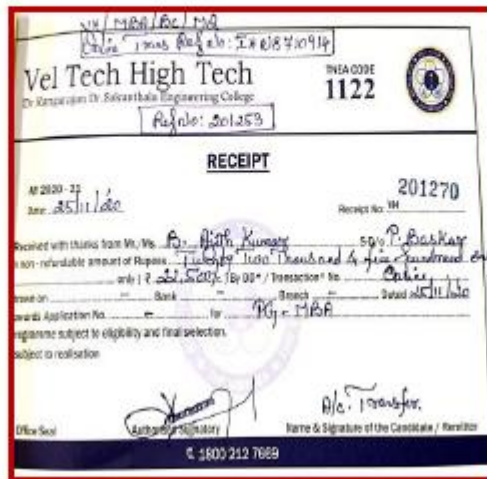 VH/MBA/BC/MQ
Online Trans Ref No: IHRN8710914
Vel Tech High Tech
Dr. Rangarajan Dr. Sakunthala Engineering College
TNEA CODE
1122
Ref No: 201253
RECEIPT
AY 2020 - 21
201270
Date: 25/11/20
Receipt No: VH
Received with thanks from Mr./Ms. B. Ajith Kumar S/D/o P. Baskar
a non - refundable amount of Rupees Twenty two Thousand & five hundred
only (₹ 22,500/- ) By DD* / Transaction* No. Online
drawn on Bank Branch Dated 25/11/20
towards Application No. for PG - MBA
programme subject to eligibility and final selection.
subject to realisation
A/c. Transfer.
Office Seal Authorised Signatory Name & Signature of the Candidate / Remitter
1800 212 7669